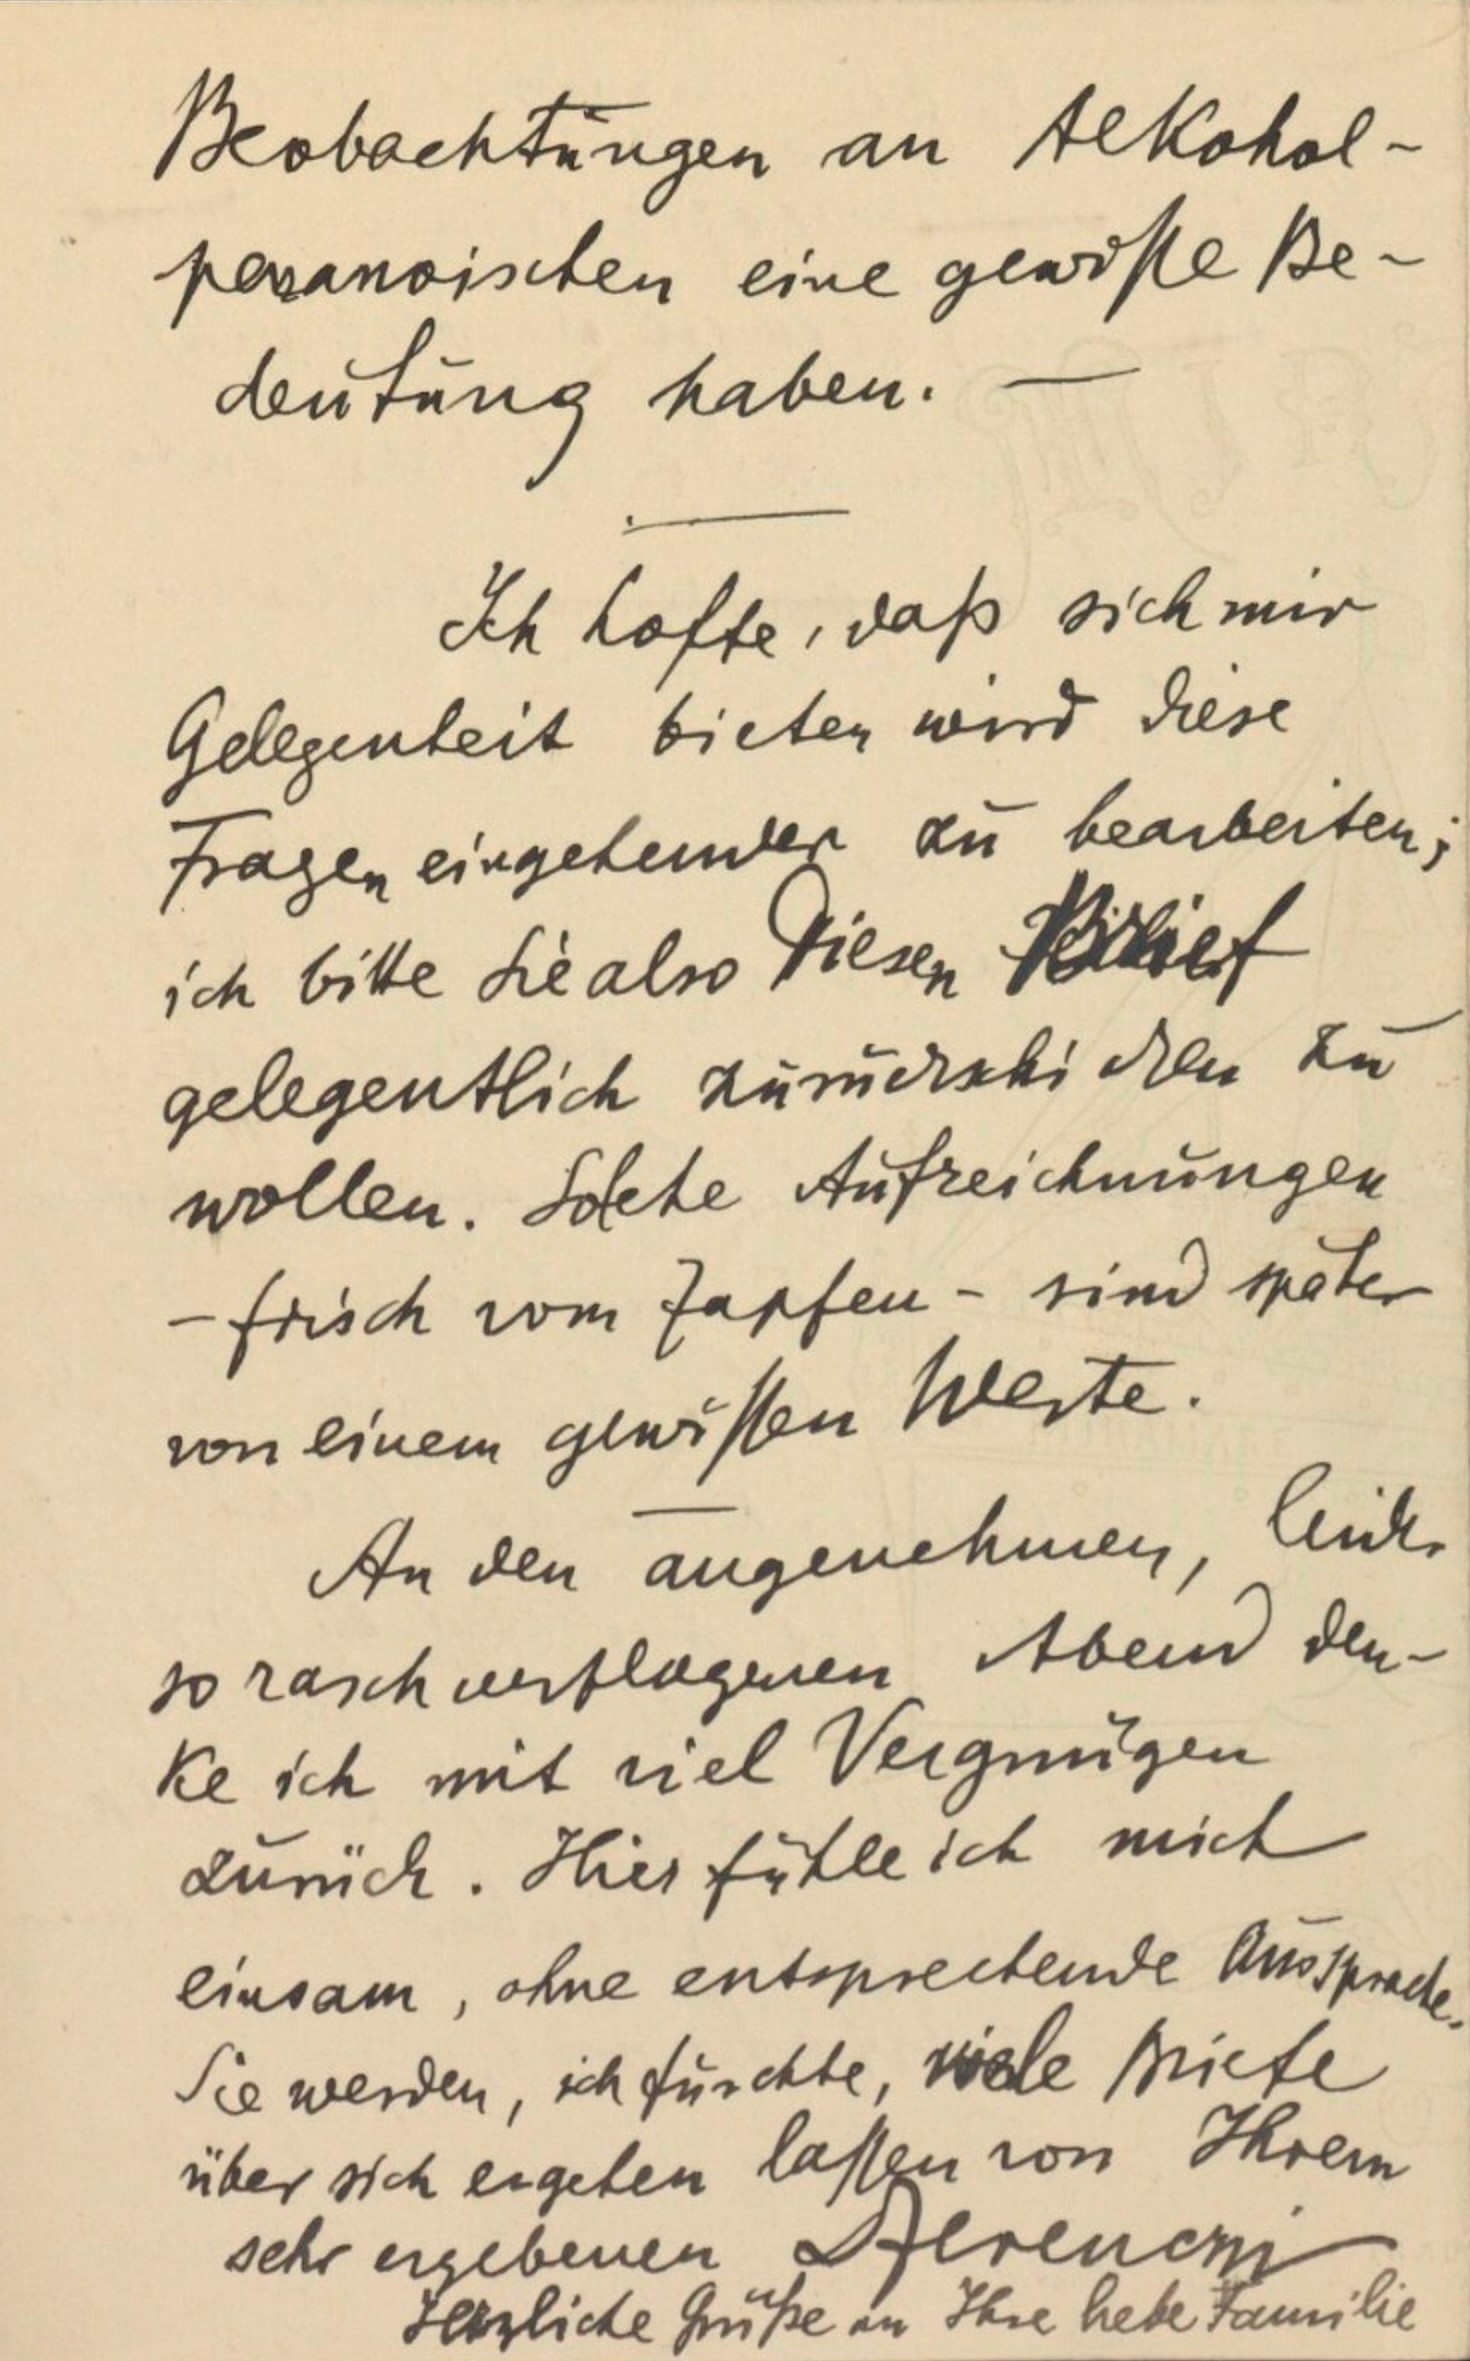 Beobachtungen an Alkohol-
paranoischen eine gewisse Be-
deutung haben. —
Ich hoffe, daß sich mir
Gelegenheit bieten wird diese
Fragen eingehender zu bearbeiten;
ich bitte Sie also diesen Brief
gelegentlich zurückschicken zu
wollen. Solche Aufzeichnungen
– frisch vom Zapfen – sind später
von einem gewissen Werte.
An den angenehmen, leider
so rasch verflogenen Abend den-
ke ich mit viel Vergnügen
zurück. Hier fühle ich mich
einsam, ohne entsprechende Aussprache.
Sie werden, ich fürchte, viele Briefe
über sich ergehen lassen von Ihrem
sehr ergebenen Ferenczi
Herzliche Grüße an Ihre liebe Familie